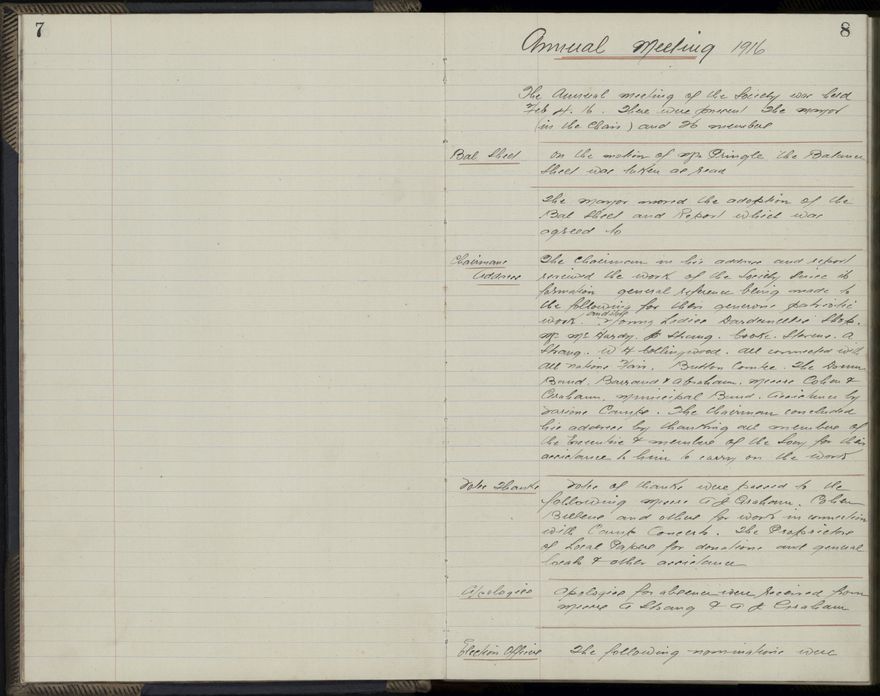 7
8
Annual Meeting 1916
The Annual meeting of the Society was held
Feb 4. 16. There were present The mayor
(in the Chair) and 26 members
Bal Sheet
on the motion of Mr Pringle the Balance
Sheet was taken as read
The mayor moved the adoption of the
Bal Sheet and Report which was
agreed to
Chairmans
Address
The Chairman in his address and report
reviewed the work of the Society since its
formation general reference being made to
the following for their generous patriotic
work. Young Ladies Dardenelles Shop.
Mr McHardy. Strang. Cooke. Stevens. A
Strang. W H Collingwood. all connected with
all nations Fair. Button Comtee. The
Band. Barraud & Abraham. Messrs Cohen &
Graham. Municipal Band. Assistance by
various Camps. The Chairman concluded
his address by thanking all members of
the Executive & members of the Socy for their
assistance to him to carry on the work
Votes Thanks
Votes of thanks were passed to the
following Messrs A J Graham. Cohen
and others for work in connection
with Camp Concerts. The Proprietors
of Local Papers for donations and general
locals & other assistance
Apologies
Apologies for absence were received from
Messrs A Strang & A J Graham
Election Officers
The following nominations were